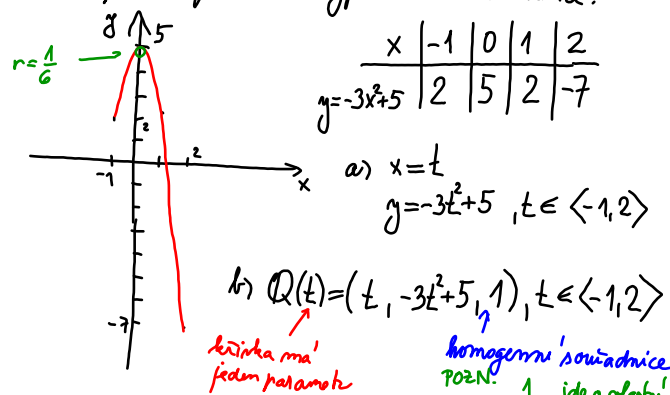 y 5
r=1/6
x | -1 | 0 | 1 | 2
y=-3x²+5 | 2 | 5 | 2 | -7
2
-1 2 x
-7
a) x=t
y=-3t²+5 , t∈⟨-1,2⟩
b) Q(t)=(t, -3t²+5, 1), t∈⟨-1,2⟩
křivka má
jeden parametr
homogenní souřadnice
POZN. 1